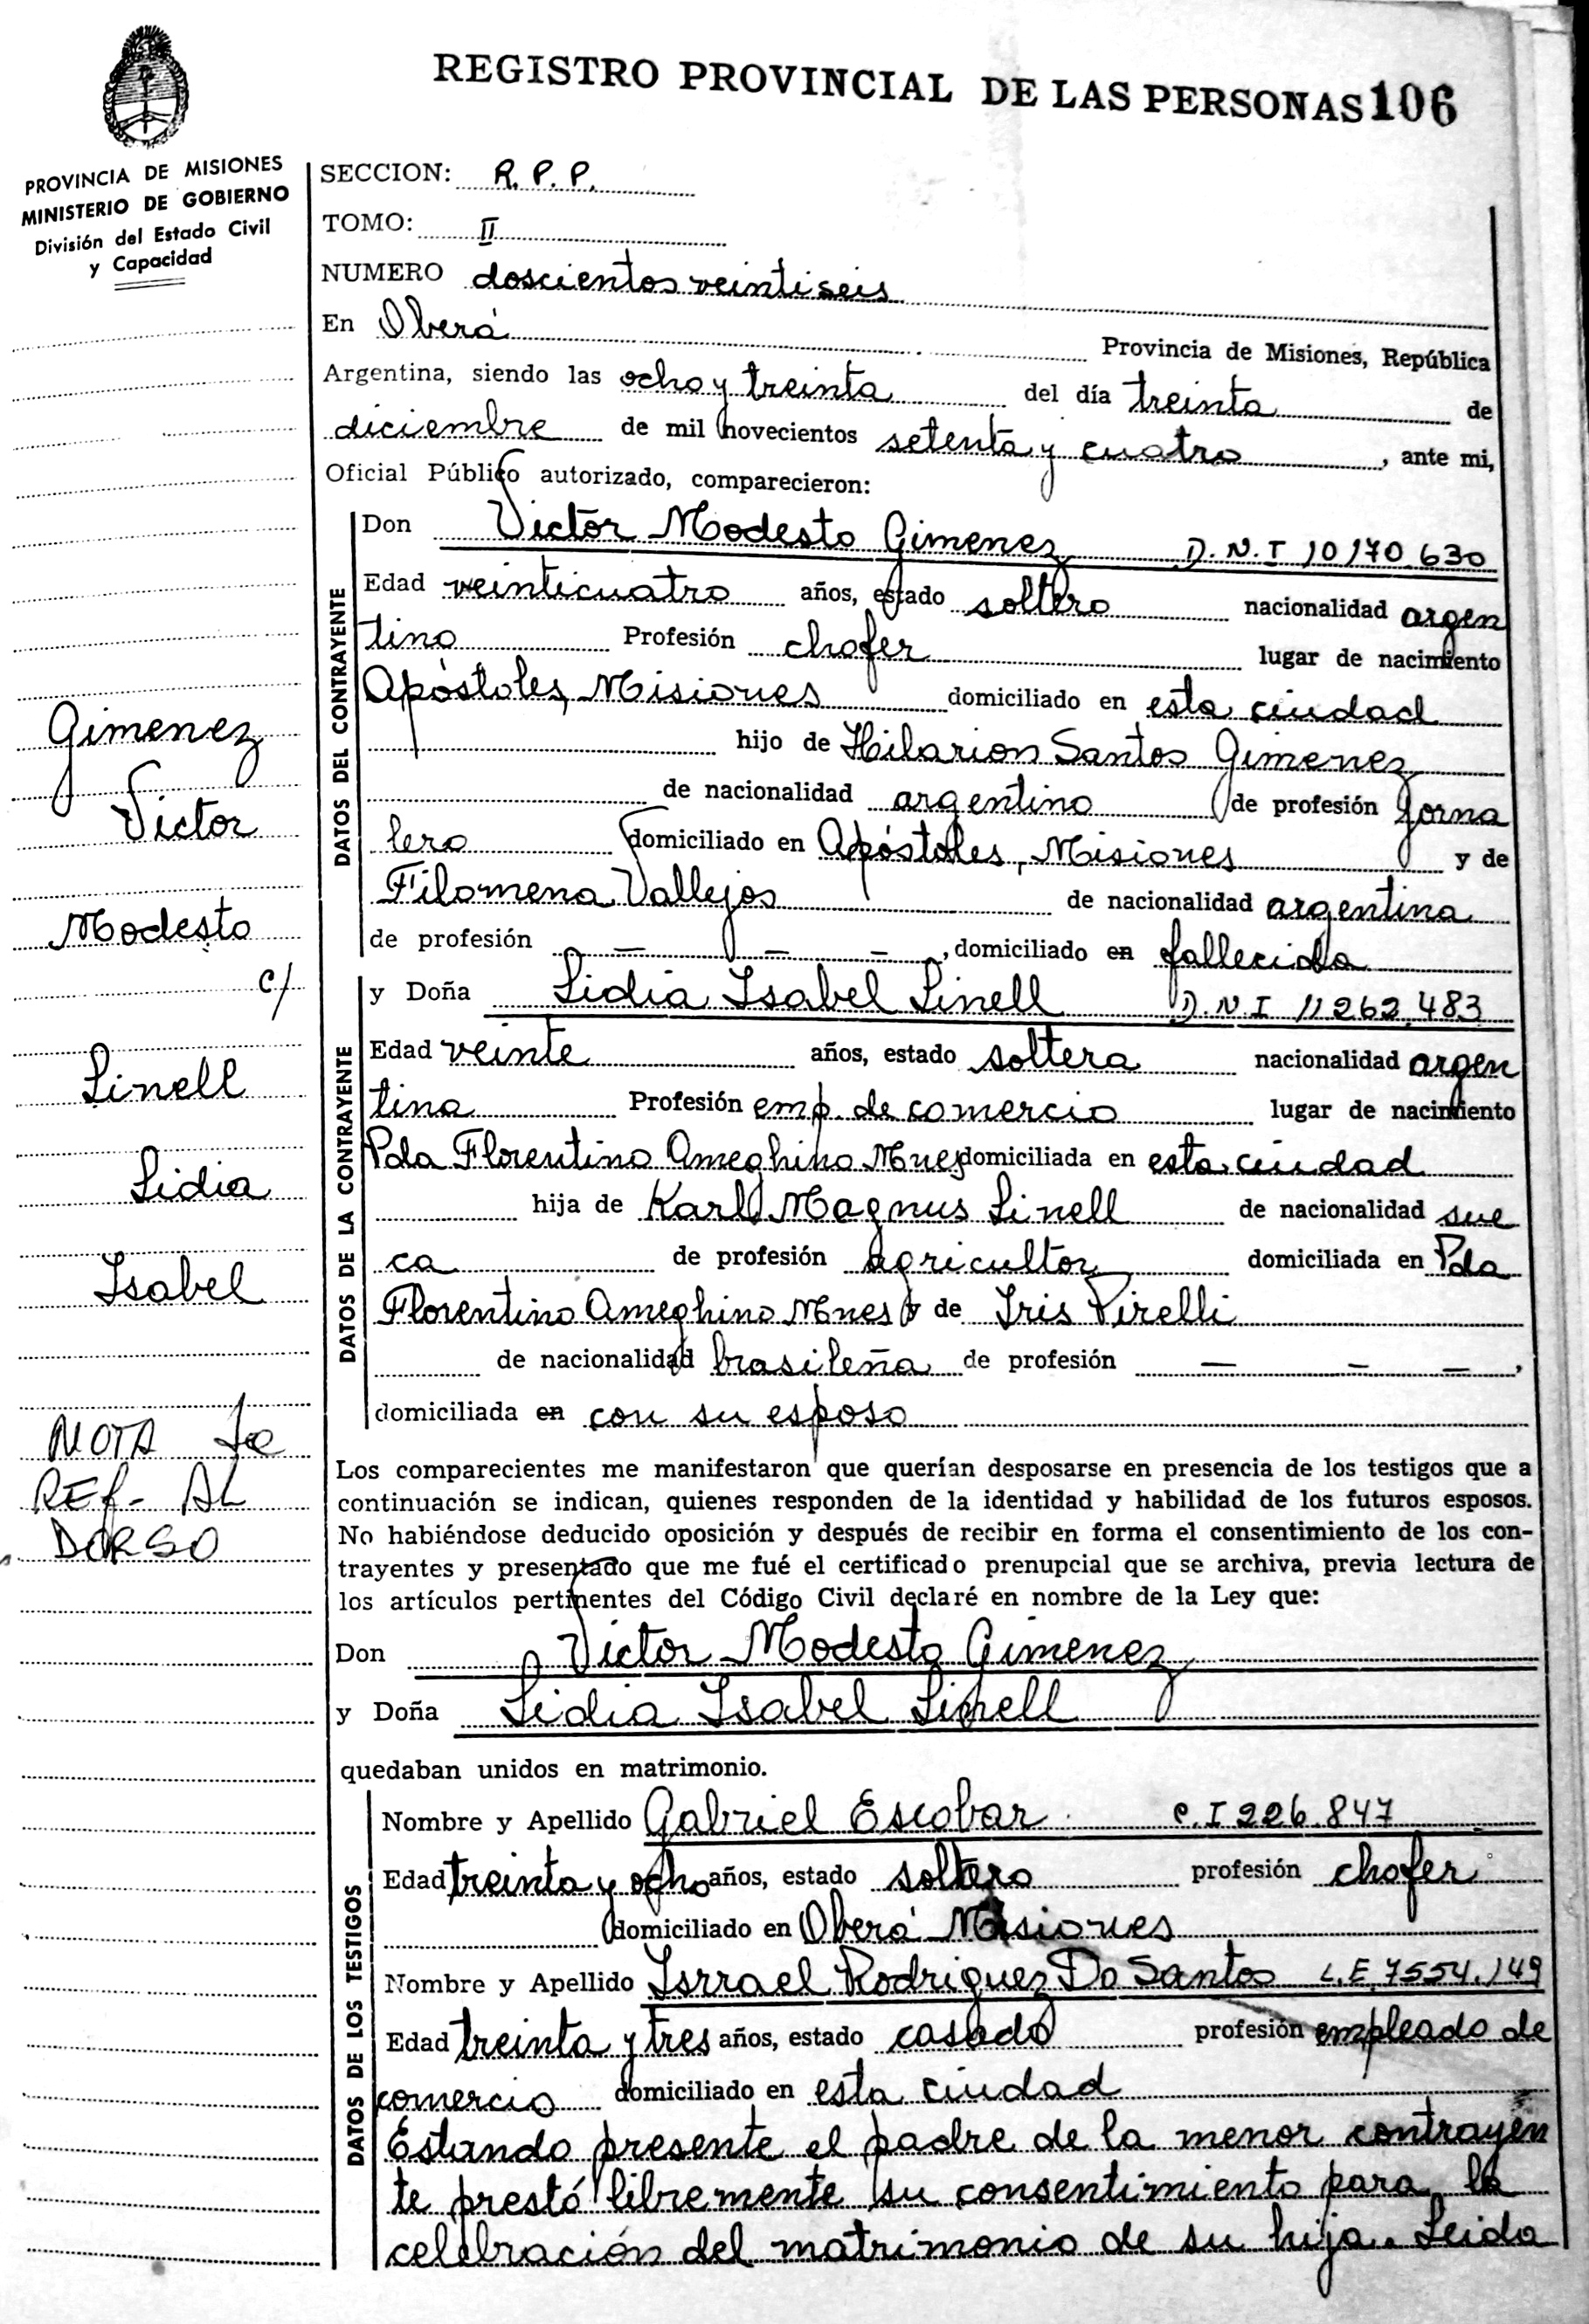 REGISTRO PROVINCIAL DE LAS PERSONAS 106
PROVINCIA DE MISIONES
MINISTERIO DE GOBIERNO
División del Estado Civil
y Capacidad
SECCION: R. P. P.
TOMO: II
NUMERO doscientos veintiseis
En Oberá Provincia de Misiones, República
Argentina, siendo las ocho y treinta del día treinta de
diciembre de mil novecientos setenta y cuatro, ante mi,
Oficial Público autorizado, comparecieron:
DATOS DEL CONTRAYENTE
Don Victor Modesto Gimenez D.N.I 10170.630
Edad veinticuatro años, estado soltero nacionalidad argen
tino Profesión chofer lugar de nacimiento
Apóstoles, Misiones domiciliado en esta ciudad
hijo de Hilarion Santos Gimenez
de nacionalidad argentino de profesión jorna
lero domiciliado en Apóstoles, Misiones y de
Filomena Vallejos de nacionalidad argentina
de profesión — — —, domiciliado en fallecida
DATOS DE LA CONTRAYENTE
y Doña Lidia Isabel Linell D.N.I 11262.483
Edad veinte años, estado soltera nacionalidad argen
tina Profesión emp de comercio lugar de nacimiento
Pda Florentino Ameghino Mnes domiciliada en esta ciudad
hija de Karl Magnus Linell de nacionalidad sue
ca de profesión agricultor domiciliada en Pda
Florentino Ameghino Mnes y de Iris Pirelli
de nacionalidad brasileña de profesión — — —,
domiciliada en con su esposo
Los comparecientes me manifestaron que querían desposarse en presencia de los testigos que a
continuación se indican, quienes responden de la identidad y habilidad de los futuros esposos.
No habiéndose deducido oposición y después de recibir en forma el consentimiento de los con-
trayentes y presentado que me fué el certificado prenupcial que se archiva, previa lectura de
los artículos pertinentes del Código Civil declaré en nombre de la Ley que:
Don Victor Modesto Gimenez
y Doña Lidia Isabel Linell
quedaban unidos en matrimonio.
DATOS DE LOS TESTIGOS
Nombre y Apellido Gabriel Escobar C.I 226.847
Edad treinta y ocho años, estado soltero profesión chofer
domiciliado en Oberá Misiones
Nombre y Apellido Isrrael Rodriguez Do Santos L.E. 7554.149
Edad treinta y tres años, estado casado profesión empleado de
comercio domiciliado en esta ciudad
Estando presente el padre de la menor contrayen
te prestó libremente su consentimiento para la
celebración del matrimonio de su hija. Leida
Gimenez
Victor
Modesto
c/
Linell
Lidia
Isabel
NOTA de
REF- AL
DORSO